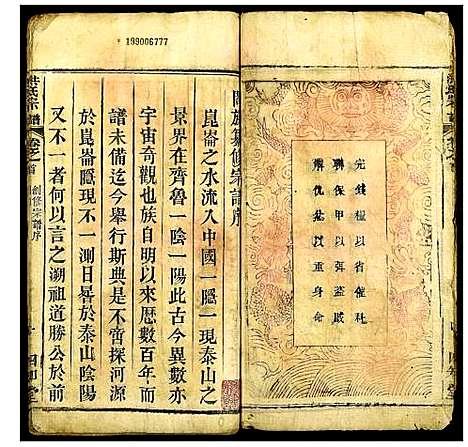 199006777
完錢糧以省催科
聯保甲以弭盜賊
解仇忿以重身命
闔族纂修宗譜序
崑崙之水流入中國一隱一現泰山之
景界在齊魯一陰一陽此古今異數亦
宇宙奇觀也族自明以來歷數百年而
譜未備迄今舉行斯典是不啻探河源
於崑崙隱現不一測日晷於泰山陰陽
又不一者何以言之溯祖道勝公於前
洪氏宗譜
卷之首
創修宗譜序